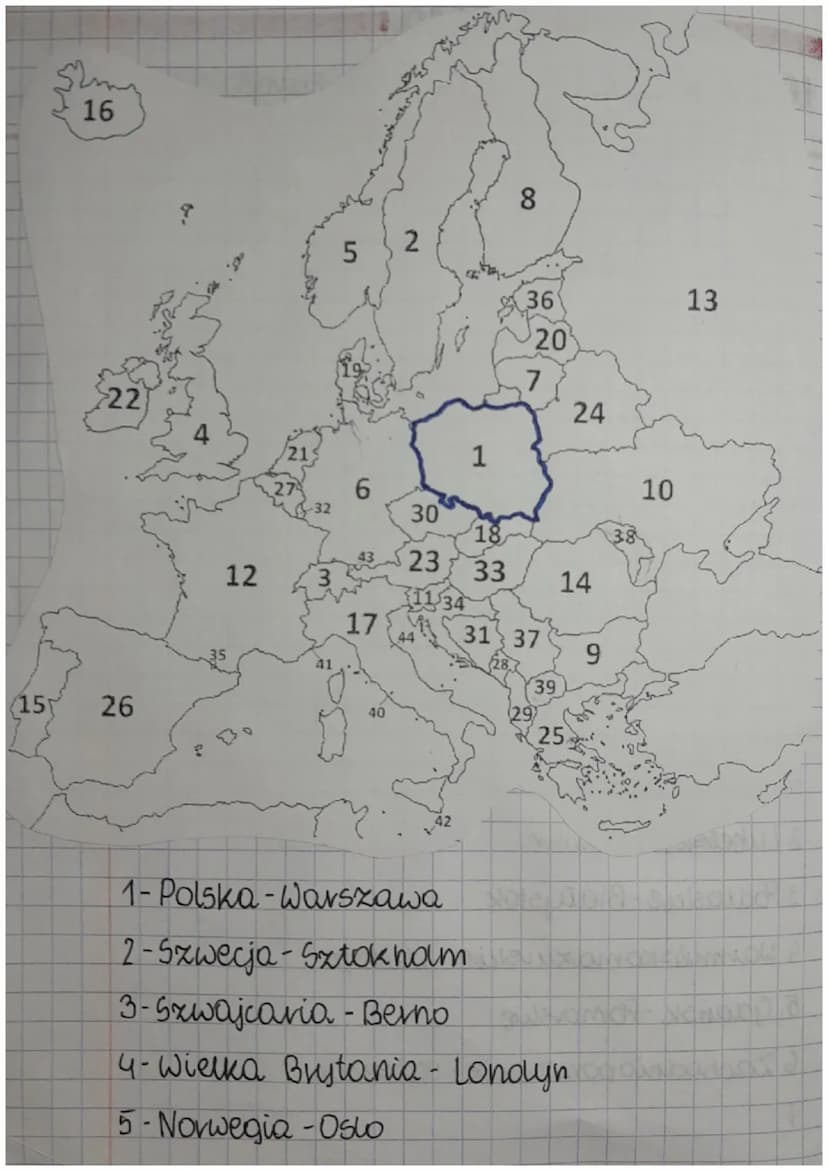 16
8
5
2
13
36
20
19
7
22
24
4
1
21
6
10
27
32
30
18
38
43
23
12
3
33
14
11
34
17
44
31
37
9
35
41
28
39
15
26
40
29
25
42
1-Polska-Warszawa
2-Szwecja-Sztokholm
3-Szwajcaria-Berno
4-Wielka Brytania-Londyn
5-Norwegia-Oslo